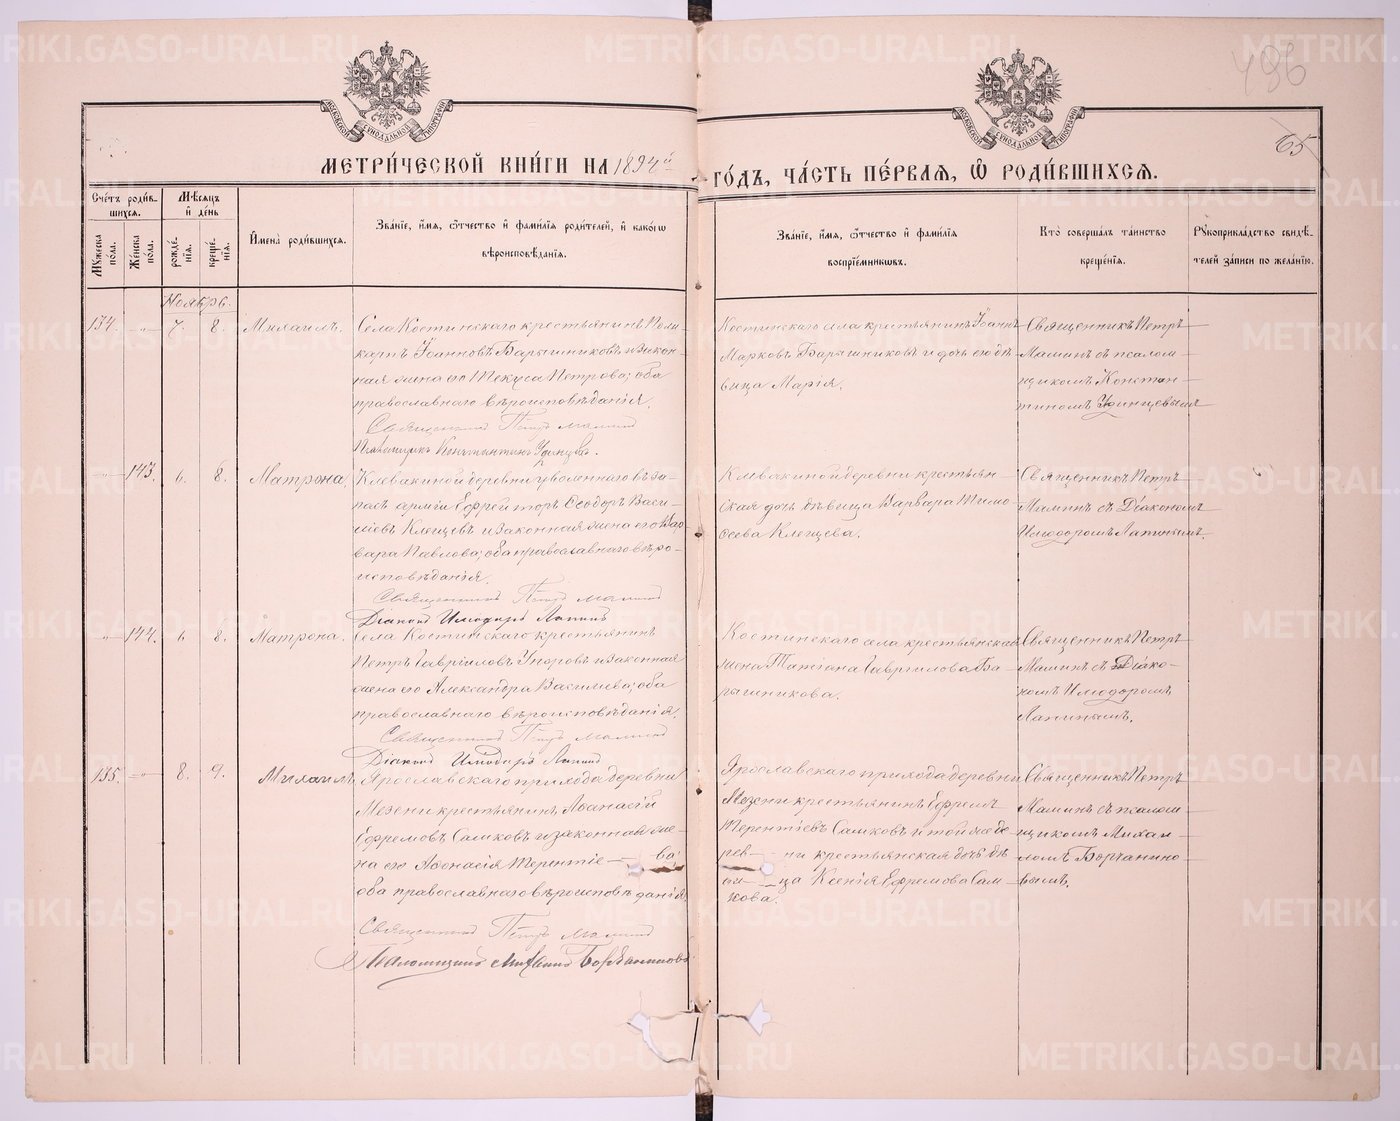 496
65
МЕТРИ́ЧЕСКОЙ КНИ́ГИ НА 1894й ГО́ДЪ, ЧА́СТЬ ПЕ́РВАЯ, Ѽ РОДИ́ВШИХСЯ.
Сче́тъ роди́вшихся.
Му́жеска по́ла.
Же́нска по́ла.
Мѣ́сяцъ и҆ де́нь
рожде́нїя.
креще́нїя.
И҆мена̀ роди́вшихся.
Зва́нїе, и҆́мя, ѻ҆́тчество и҆ фами́лїя роди́телей, и҆ како́гѡ
вѣроисповѣ́данїя.
Зва́нїе, и҆́мя, ѻ҆́тчество и҆ фами́лїя
воспрїе́мникѡвъ.
Кто̀ соверша́лъ та́инство
креще́нїя.
Рꙋкоприкла́дство свидѣ́-
телей за́писи по жела́нїю.
Ноябрь.
134. -"- 7. 8. Михаилъ.
Села Костинскаго крестьянинъ Поли-
карпъ Іоанновъ Барышниковъ и закон-
ная жена его Текуса Петрова; оба
православнаго вѣроисповѣданія.
Священникъ Петръ Маминъ
Псаломщикъ Константинъ Удинцевъ.
Костинскаго села крестьянинъ Іоаннъ
Марковъ Барышниковъ и дочь его дѣ-
вица Марія.
Священникъ Петръ
Маминъ съ псалом-
щикомъ Констан-
тиномъ Удинцевымъ
-"- 143. 6. 8. Матрона.
Клевакиной деревни уволеннаго въ за-
пасъ арміи Ефрейторъ Ѳеодоръ Васи-
льевъ Клещевъ и законная жена его Вар-
вара Павлова; оба православнаго вѣро-
исповѣданія.
Священникъ Петръ Маминъ
Діаконъ Илиодоръ Лапинъ
Клевакиной деревни крестьян-
ская дочь дѣвица Варвара Тимо-
ѳеева Клещева.
Священникъ Петръ
Маминъ съ Діакономъ
Илиодоромъ Лапинымъ.
-"- 144. 6. 8. Матрона.
Села Костинскаго крестьянинъ
Петръ Гавріиловъ Упоровъ и законная
жена его Александра Васильева; оба
православнаго вѣроисповѣданія.
Священникъ Петръ Маминъ
Діаконъ Илиодоръ Лапинъ
Костинскаго села крестьянская
жена Татіана Гавриилова Ба-
рышникова.
Священникъ Петръ
Маминъ съ Діако-
номъ Илиодоромъ
Лапинымъ.
135. -"- 8. 9. Михаилъ
Ярославскаго прихода деревни
Мезени крестьянинъ Аѳанасій
Ефремовъ Самковъ и законная же-
на его Аѳанасія Терентіе—ва;
оба православнаго вѣроисповѣданія.
Священникъ Петръ Маминъ
Псаломщикъ Михаилъ Борчаниновъ
Ярославскаго прихода деревни
Мезени крестьянинъ Ефремъ
Терентіевъ Самковъ и той же де-
рев—ни крестьянская дочь дѣ-
ви—ца Ксенія Ефремова Сам-
кова.
Священникъ Петръ
Маминъ съ псалом-
щикомъ Михаи-
ломъ Борчанино-
вымъ.
METRIKI.GASO-URAL.RU